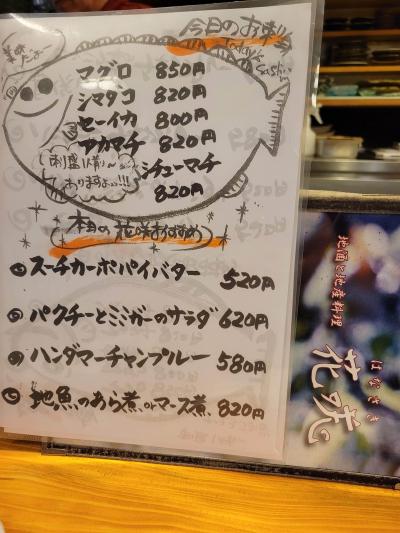 今日のお刺身
Today's Sashimi
美味だよー
マグロ 850円
シマダコ 820円
セーイカ 800円
アカマチ 820円
シチューマチ
820円
刺盛1人前〜
ありますよぉ!!!
本日の花咲おすすめ
スーチカーポパイバター 520円
パクチーとミミガーのサラダ 620円
ハンダマーチャンプルー 580円
地魚のあら煮orマース煮 820円
地酒と地産料理
はなさき
花咲